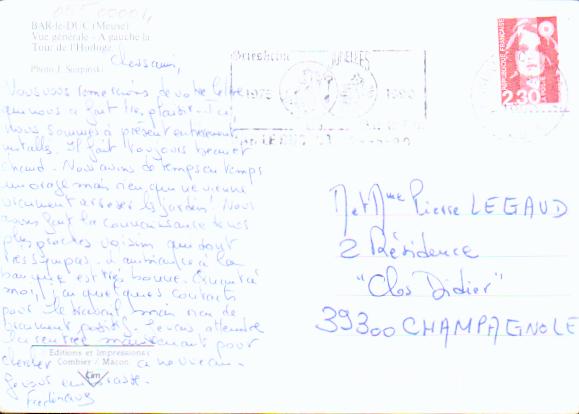 BAR-le-DUC (Meuse)
Vue générale - A gauche la
Tour de l'Horloge.
Photo J. Surpinski
Chers amis,
Nous vous remercions de votre lettre
qui nous a fait très plaisir. Ici,
nous sommes à présent entièrement
installés. Il fait toujours beau et
chaud. Nous avons de temps en temps
un orage mais rien qui ne vienne
vraiment arroser les jardins! Nous
avons fait la connaissance de nos
plus proches voisins qui sont
très sympas. L'ambiance à la
banque est très bonne. Quant à
moi, j'ai quelques contacts
pour le travail mais rien de
vraiment positif. Je vais attendre
la rentrée maintenant pour
chercher à nouveau.
Je vous embrasse.
Frédérique
Editions et Impressions
Combier / Macon
Cim
Griesheim
1975 1990
REPUBLIQUE FRANÇAISE
2,30
M et Mme Pierre LEGAUD
2 Résidence
"Clos Didier"
39300 CHAMPAGNOLE